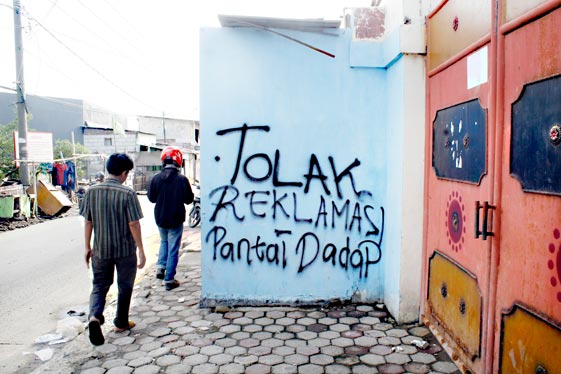 TOLAK
REKLAMASI
Pantai Dadap